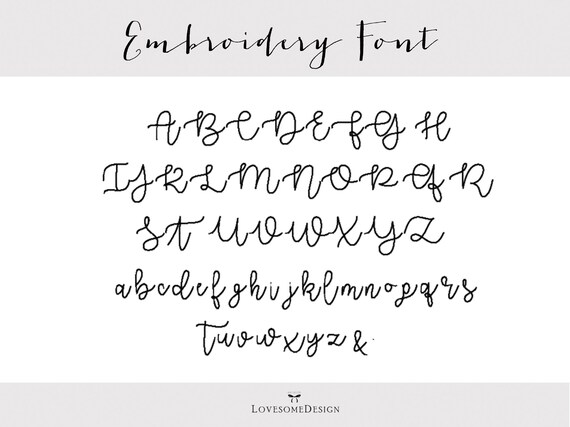 Embroidery Font
A B C D E F G H
I J K L M N O P Q R
S T U V W X Y Z
a b c d e f g h i j k l m n o p q r s
t u v w x y z &
LOVESOMEDESIGN